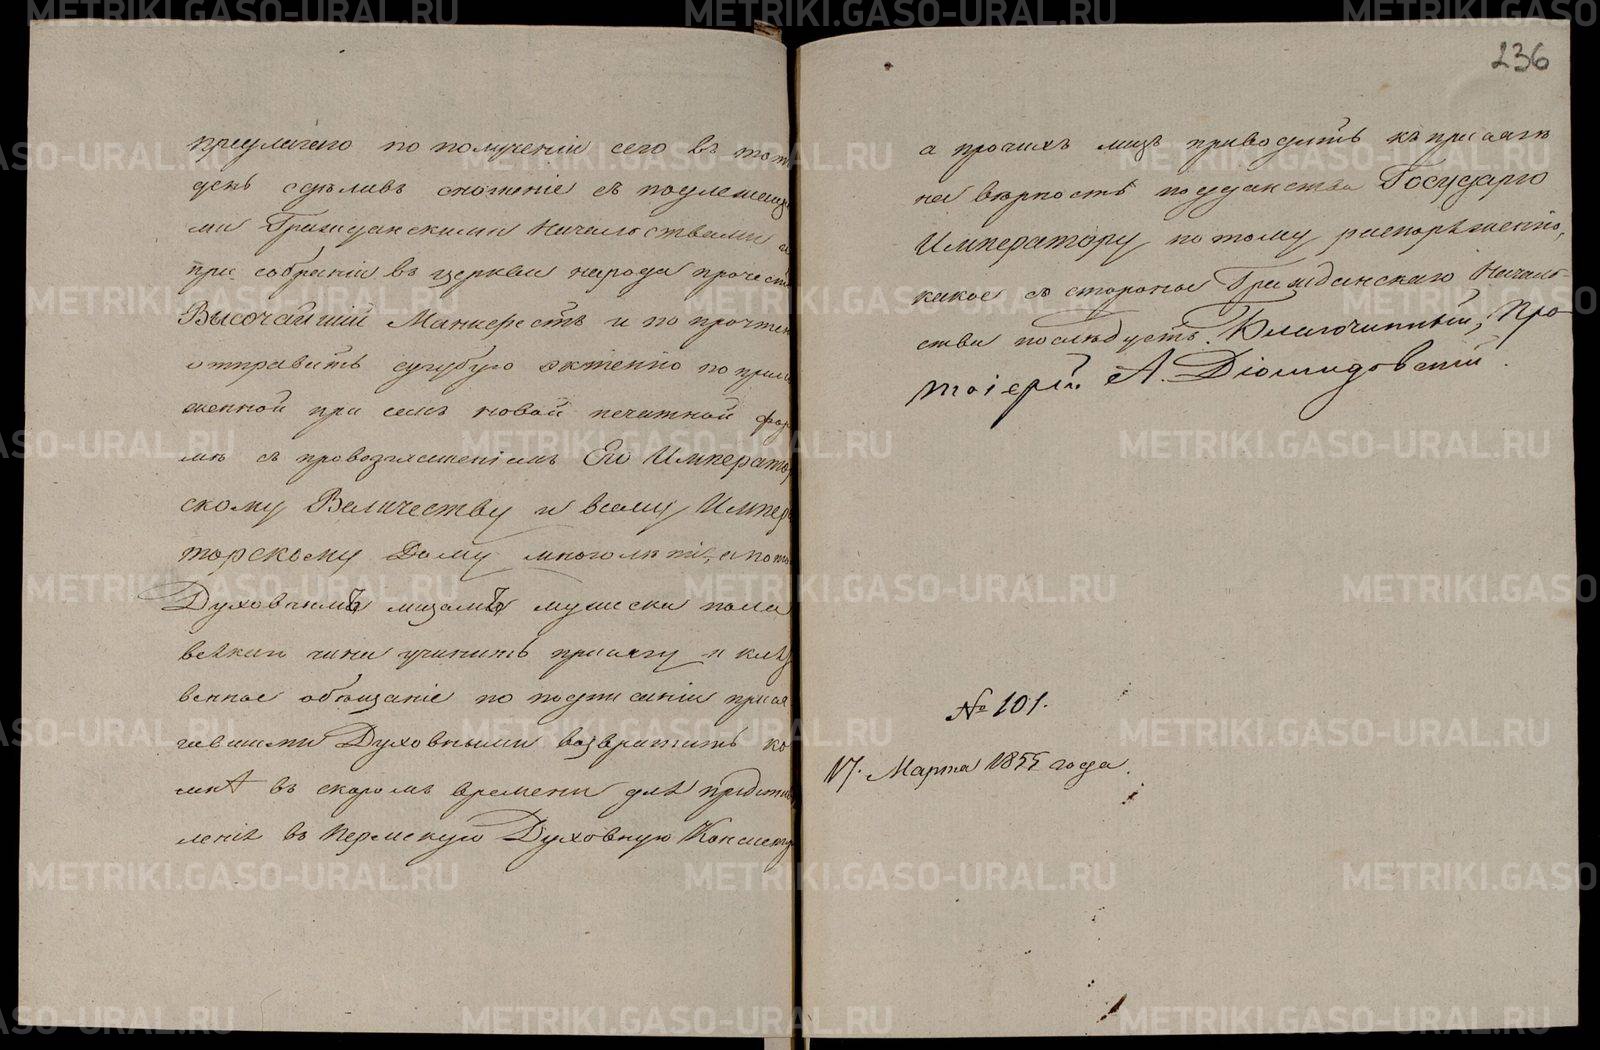 по получении сего въ тотъ
день сдѣлавъ сношеніе съ подлежащи
ми Гражданскими Начальствами и
при собраніи въ церкви народа прочесть
Высочайшій Манифестъ и по прочтен
отправить сугубую эктенію по прило
женной при семъ новой печатной фор
мѣ съ провозглашеніемъ Его Император
скому Величеству и всему Импера
торскому Дому многолѣтія, а пото
Духовнымъ лицамъ мужеска пола
всякаго чина учинить присягу и кля
венное обѣщаніе по подписаніи прися
гавшими Духовными возвратить ко
мнѣ въ скоромъ времени для представ
ленія въ Пермскую Духовную Консисто
236
а прочихъ лицъ приводить къ присягѣ
на вѣрность подданства Государю
Императору, потому распоряженію,
какое съ стороны Гражданскаго Началь-
ства послѣдуетъ. Благочинный, Про-
тоіерей А. Діомидовскій.
№ 101.
17. Марта 1855 года.
METRIKI.GASO-URAL.RU